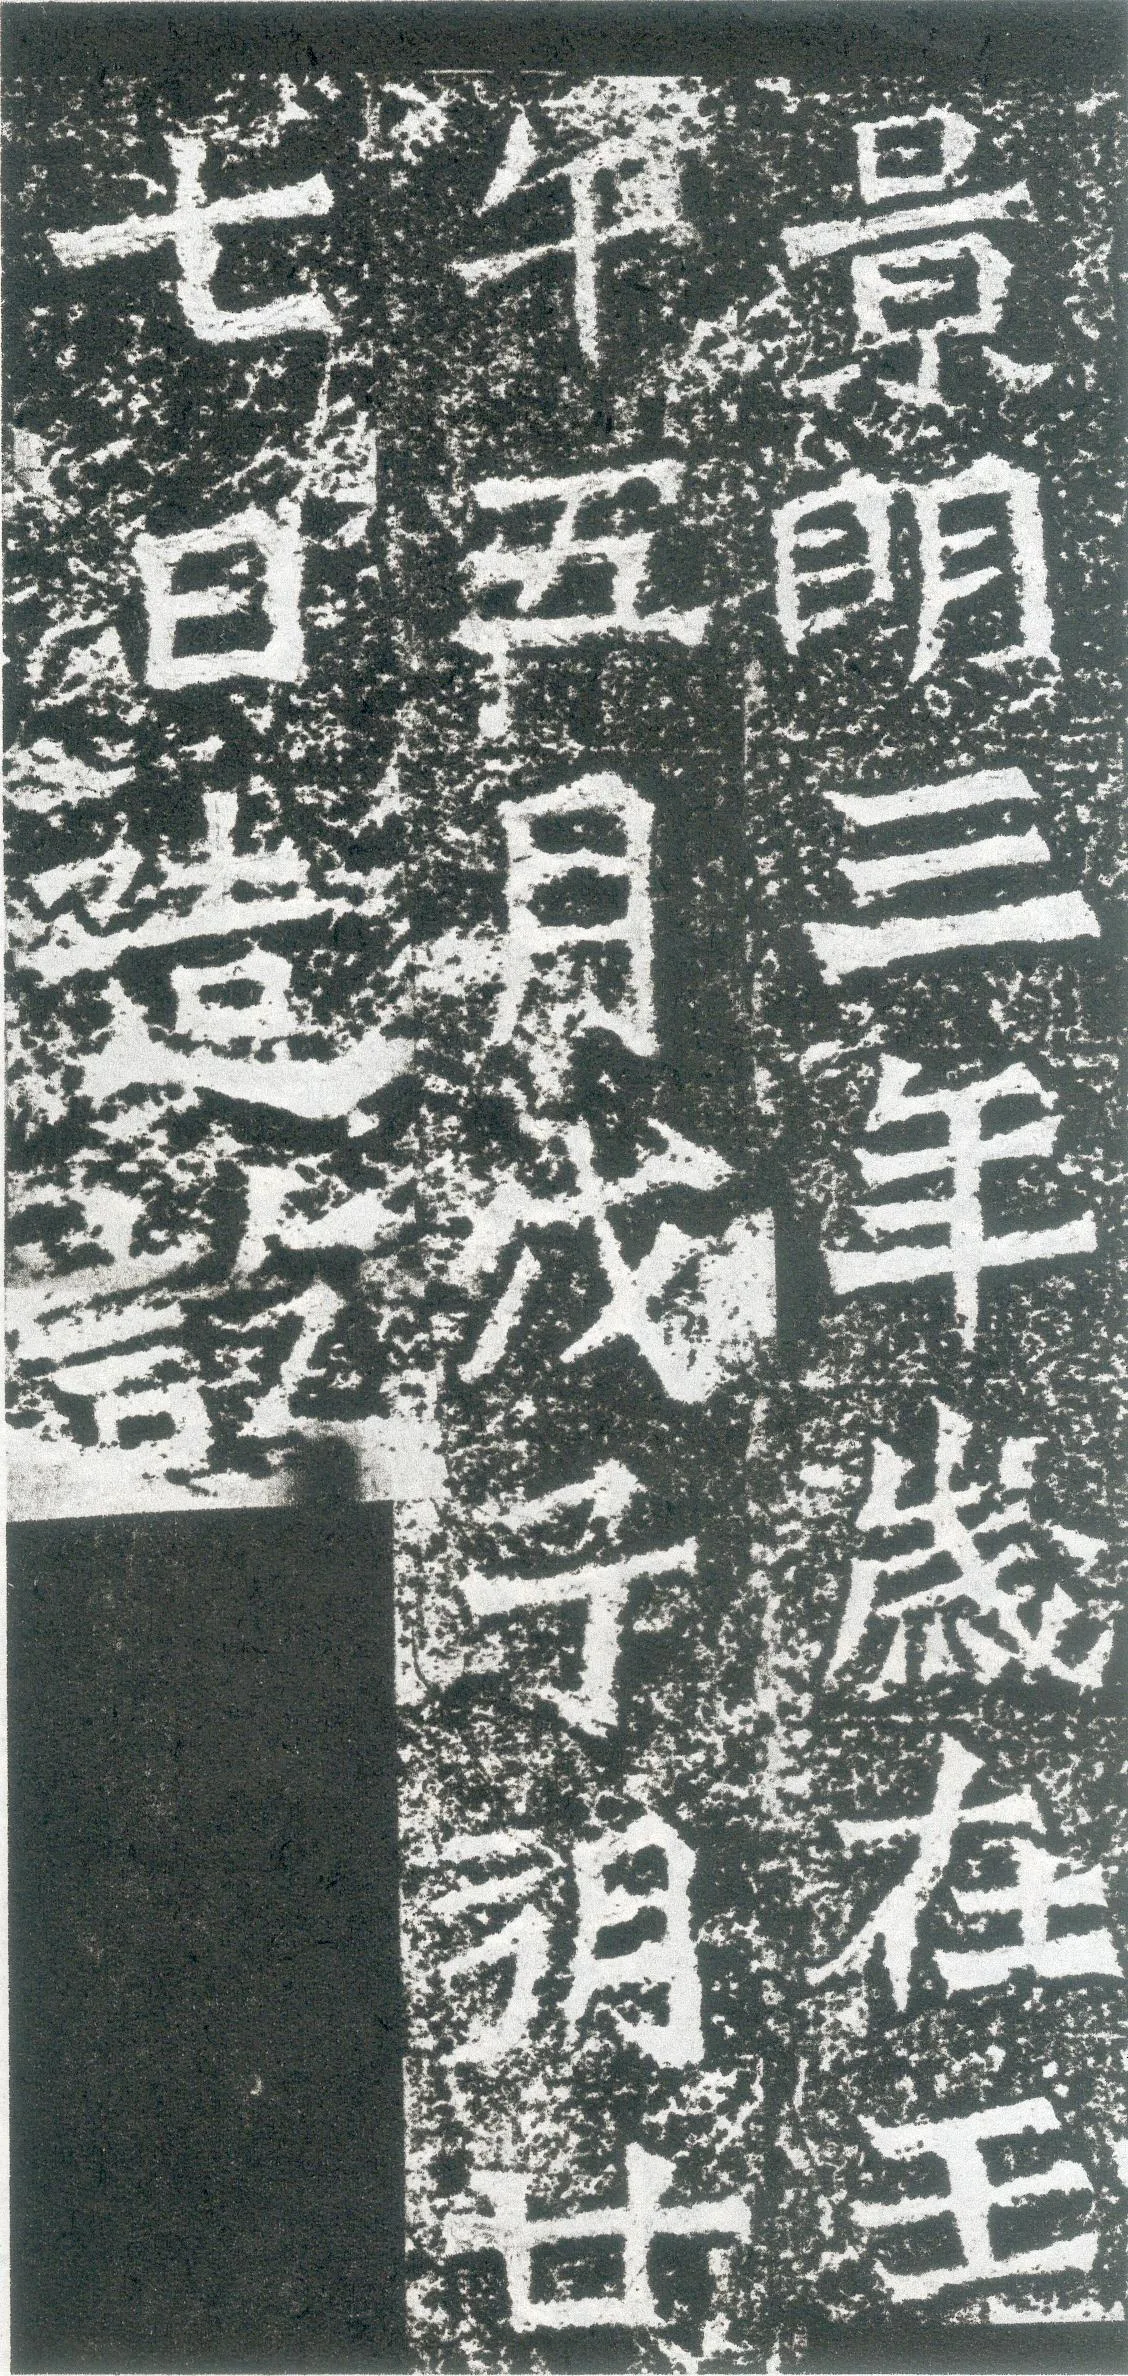 景明三年歲在壬
午五月戊子朔廿
七日造訖